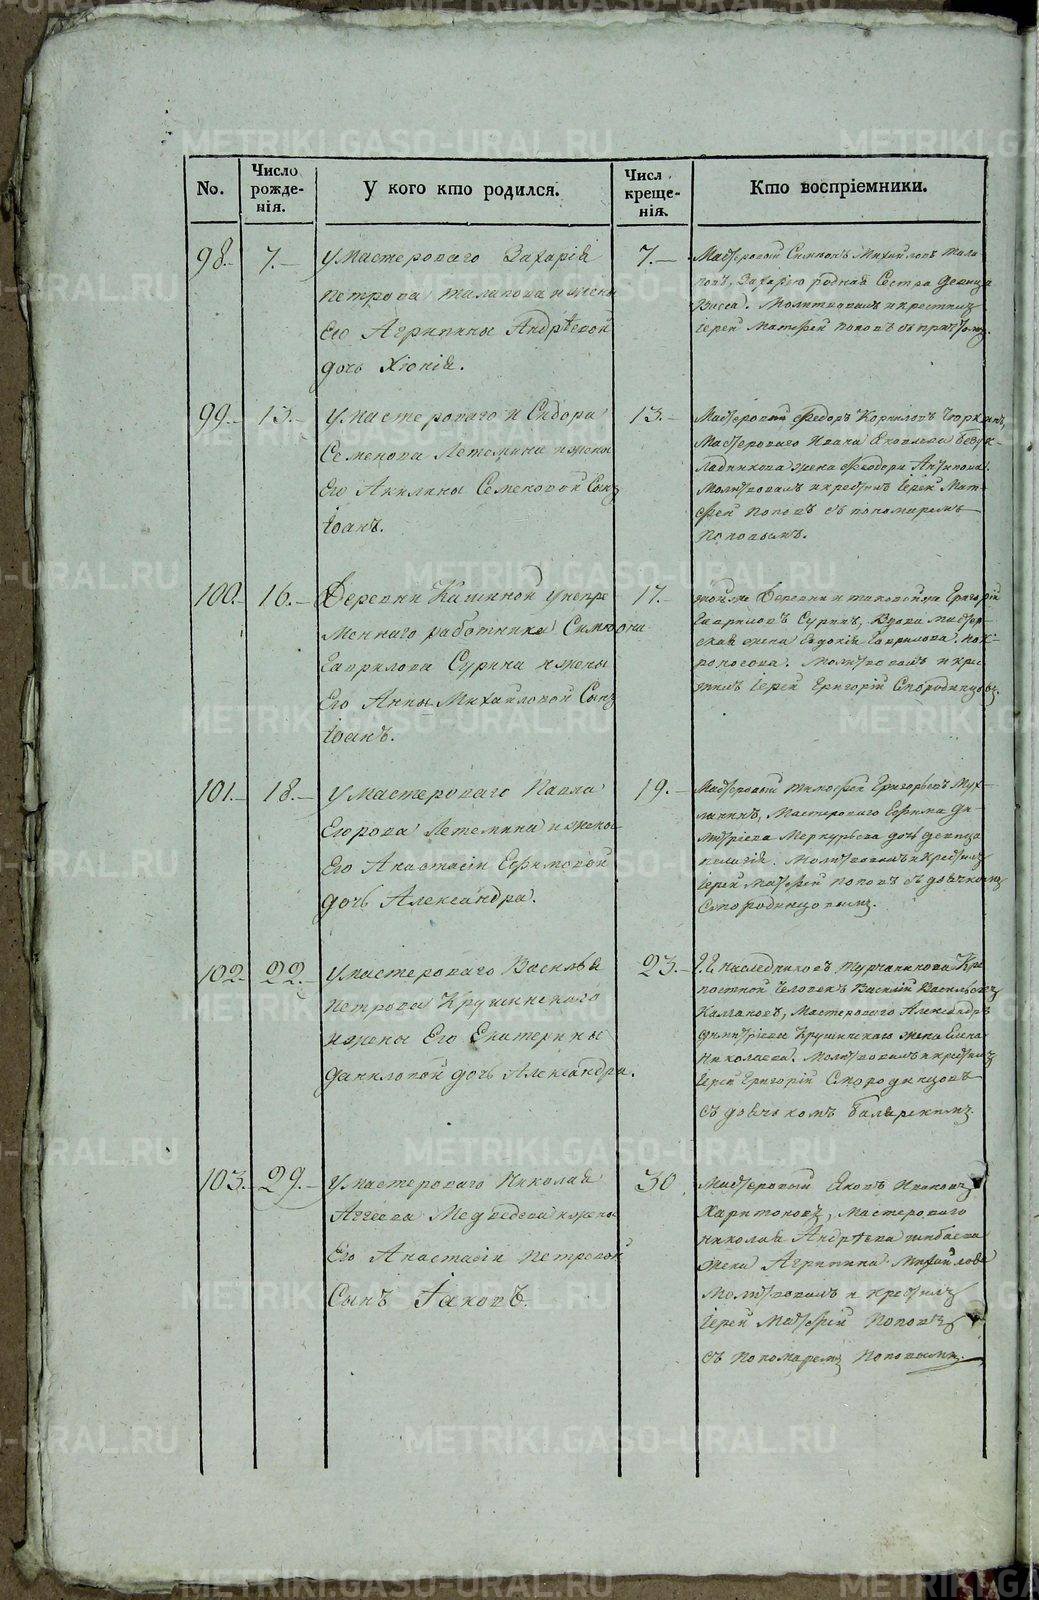 No.
Число рожденія.
У кого кто родился.
Числ. крещенія.
Кто воспріемники.
98.
7.
У мастероваго Захарія
Петрова Талапова и жены
Его Агрипины Андрѣевой
дочь Хіонія.
7.
Мастеровой Симионъ Михайловъ Тала-
повъ, Захарію родная Сестра девица
Васса. Молитвовалъ и крестилъ
іерей Матѳей Поповъ съ причтомъ.
99.
13.
У мастероваго Сидора
Семенова Летемина и жены
Его Акилины Семеновой Сынъ
Іоанъ.
13.
Мастеровый Федоръ Корниловъ
Мастероваго Ивана Яковлева
жена Феодора Антипова.
Молитвовалъ и крестилъ іерей Мат-
ѳей Поповъ съ пономаремъ
Поповымъ.
100.
16.
Деревни Кашиной у непре
меннаго работника Симиона
Гаврилова Сурина и жены
Его Анны Михайловой Сынъ
Іоанъ.
17.
той же Деревни и таковой же Григорій
Гавриловъ Суринъ, Вдова мастер-
ская жена Евдокія Гаврилова
Молитвовалъ и кре
стилъ іерей Григорій Смородинцовъ.
101.
18.
У мастероваго Павла
Егорова Летемина и жены
Его Анастасіи Ефимовой
дочь Александра.
19.
Мастеровый Тимофей Григорьевъ Мух-
Мастероваго Ефима Ди-
митріева Меркурьева дочь девица
Пелагія. Молитвовалъ и крестилъ
іерей Матѳей Поповъ съ дьячкомъ
Смородинцовымъ.
102.
22.
У мастероваго Василья
Петрова Крушинскаго
и жены Его Екатерины
Даниловой дочь Александра.
23.
Г.Г. наследниковъ Турчанинова Кре
постной Человекъ Василій Васильевъ
Калгановъ, Мастероваго Александра
Димитріева Крушинскаго жена Елена
Николаева. Молитвовалъ и крестилъ
Іерей Григорій Смородинцовъ
съ дьячкомъ
103.
29.
У мастероваго Николая
Аггеева Медведева и жены
Его Анастасіи Петровой
Сынъ Іаковъ.
30
Мастеровый Яковъ Ивановъ
Харитоновъ, Мастероваго
Николая Андрѣева Шибаева
жена Агрипина Михайлова
Молитвовалъ и крестилъ
Іерей Матѳей Поповъ
съ Пономаремъ Поповымъ.
METRIKI.GASO-URAL.RU